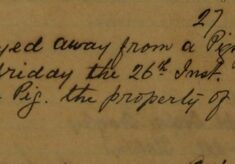 27
yed away from a Pig
riday the 26th Inst.
Pig. the property of